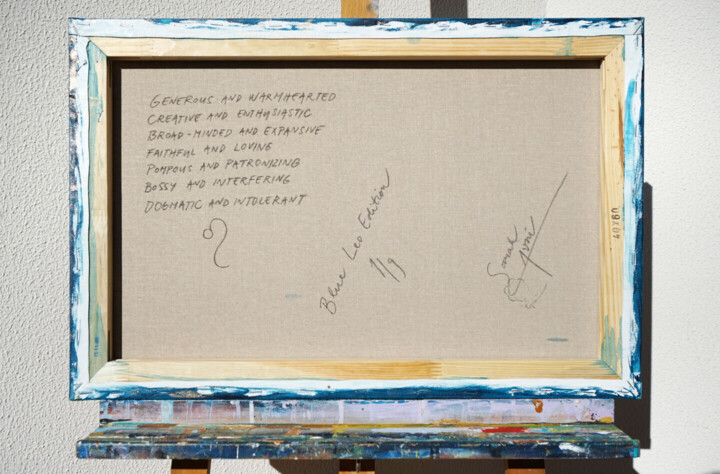 GENEROUS AND WARMHEARTED
CREATIVE AND ENTHUSIASTIC
BROAD-MINDED AND EXPANSIVE
FAITHFUL AND LOVING
POMPOUS AND PATRONIZING
BOSSY AND INTERFERING
DOGMATIC AND INTOLERANT
♌
Blue Leo Edition
1/9
40x60